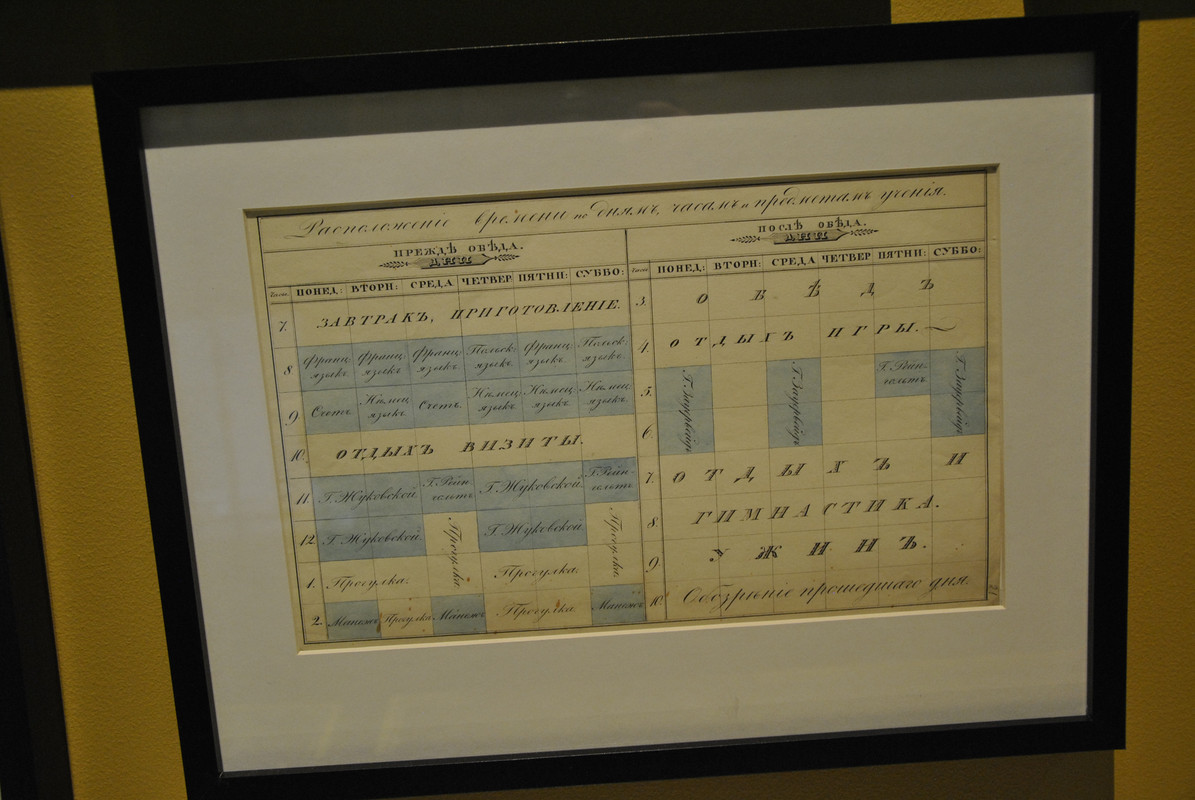 Расположеніе времени по днямъ, часамъ и предметамъ ученія.
ПРЕЖДѢ ОБѢДА.
ДНИ
ПОНЕД: ВТОРН: СРЕДА ЧЕТВЕР ПЯТНИ: СУББО:
7. ЗАВТРАКЪ, ПРИГОТОВЛЕНІЕ.
8 Франц. языкъ Франц. языкъ Франц. языкъ Польск. языкъ. Франц. языкъ. Польск. языкъ.
9 Счетъ Нѣмец. языкъ. Счетъ. Нѣмец. языкъ Нѣмец. языкъ. Нѣмец. языкъ.
10. ОТДЫХЪ ВИЗИТЫ.
11 Г. Жуковской. Г. Рейн-гольтъ Г. Жуковской. Г. Рейн-гольтъ
12. Г. Жуковской. Прогулка. Г. Жуковской. Прогулка.
1. Прогулка. Прогулка.
2. Манежъ Прогулка Манежъ Прогулка Манежъ
ПОСЛѢ ОБѢДА.
ДНИ
ПОНЕД: ВТОРН: СРЕДА ЧЕТВЕР ПЯТНИ: СУББО:
3. ОБѢДЪ
4. ОТДЫХЪ ИГРЫ.
5. Г. Рейн-гольтъ
6.
7. ОТДЫХЪ И
8. ГИМНАСТИКА.
9. УЖИНЪ.
10. Обозрѣніе прошедшаго дня.